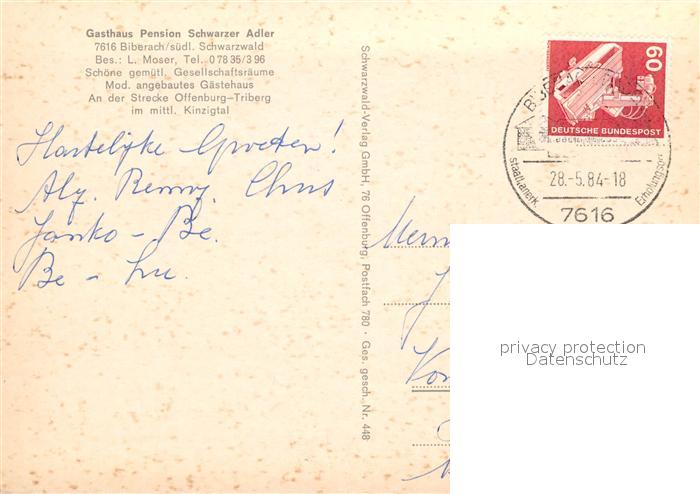 Gasthaus Pension Schwarzer Adler
7616 Biberach/südl. Schwarzwald
Bes.: L. Moser, Tel. 0 78 35/3 96
Schöne gemütl. Gesellschaftsräume
Mod. angebautes Gästehaus
An der Strecke Offenburg–Triberg
im mittl. Kinzigtal
Hartelijke Groeten!
Aly. Remmy. Chris
Janko - Be.
Be - Lu.
Schwarzwald-Verlag GmbH, 76 Offenburg, Postfach 780 · Ges. gesch. Nr. 448
60
DEUTSCHE BUNDESPOST
staatl.anerk
28.-5.84-18
Erholungsort
7616
privacy protection
Datenschutz